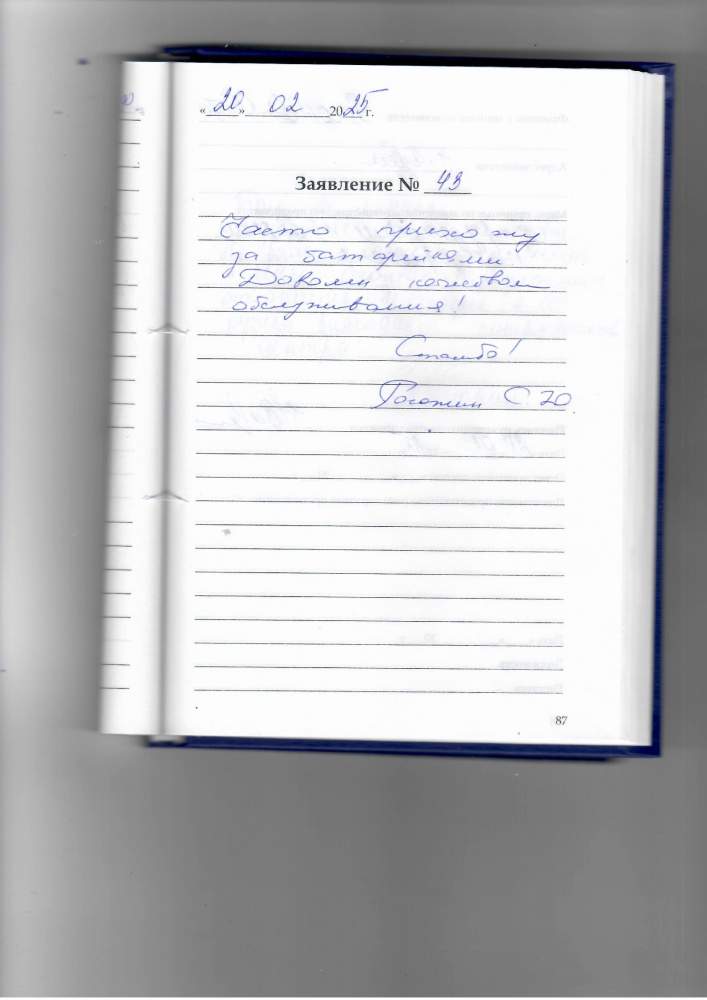 «20» 02 2025 г.
Заявление № 43
Часто прихожу
за батарейками
Доволен качеством
обслуживания!
Спасибо!
Рогожин С.Ю
87